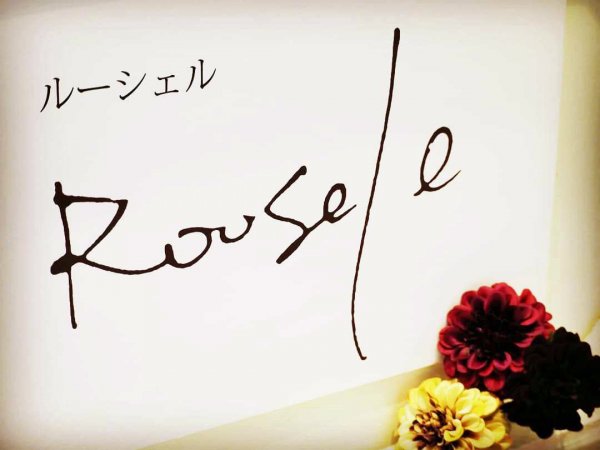 ルーシェル
Rousele